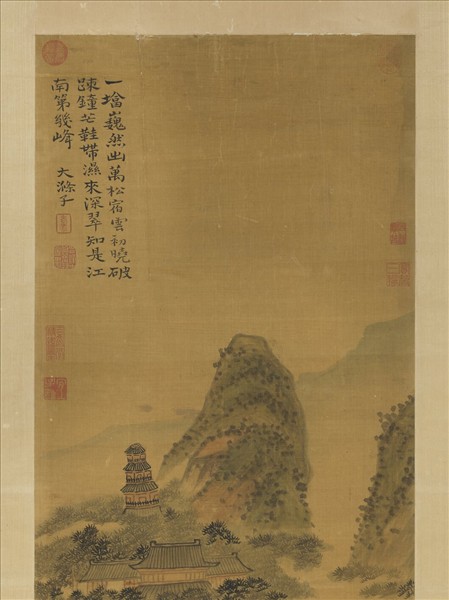 一墖巍然出萬松宿雲初曉破
踈鐘芒鞋帶濕來深翠知是江
南第幾峰 大滌子